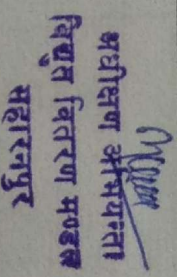 अधीक्षण अभियन्ता
विद्युत वितरण मण्डल
सहारनपुर